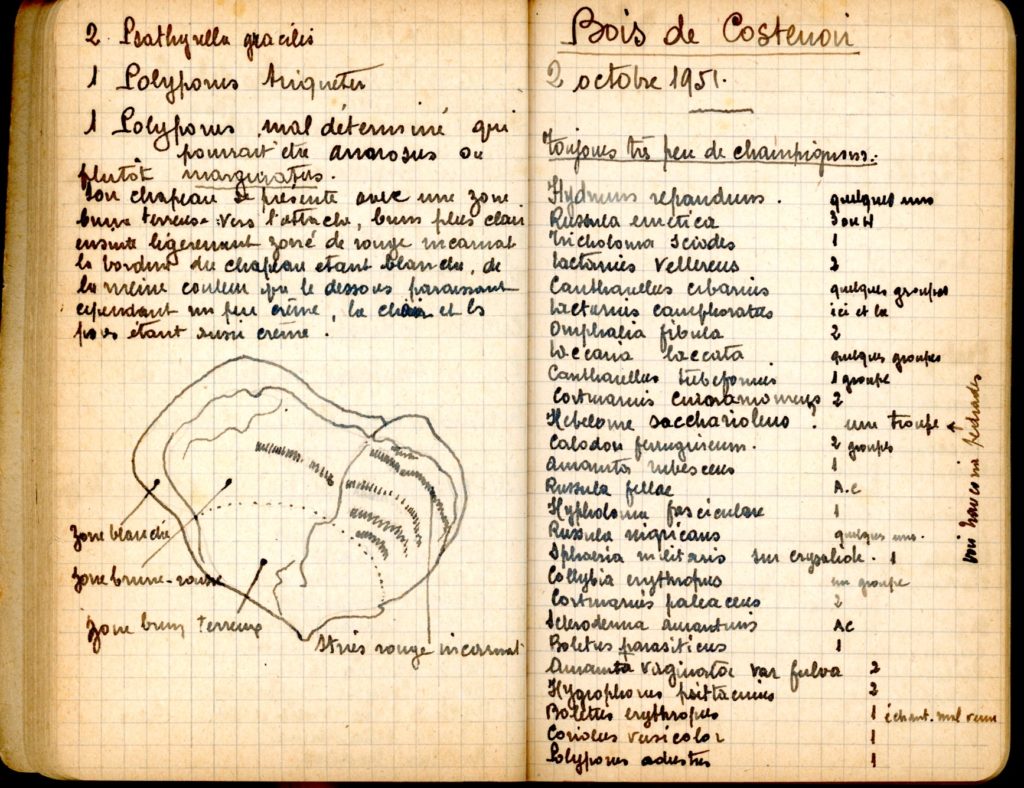 2 Psathyrella gracilis
1 Polyporus
1 Polyporus mal déterminé qui
pourrait être amorosus ou
plutôt marginatus.
Son chapeau se présente avec une zone
brune terreuse vers l'attache, brun plus clair
ensuite légèrement zoné de rouge incarnat
la bordure du chapeau étant blanche, de
la même couleur que le dessous paraissant
cependant un peu crème, la chair et les
pores étant aussi crème.
zone blanche
zone brune-rousse
zone brun terreux
Stries rouge incarnat
Bois de Costenoir
2 octobre 1951.
Toujours très peu de champignons.
Hydnum repandum. quelques uns
Russula emetica 3 ou 4
Tricholoma sciodes 1
Lactarius vellereus 2
Cantharellus cibarius quelques groupes
Lactarius camphoratus ici et là
Omphalia fibula 2
Laccaria laccata quelques groupes
Cantharellus tubeformis 1 groupe
Cortinarius cinnamomeus 2
Hebeloma sacchariolens ? une troupe
Calodon ferrugineum. 2 groupes
Amanita rubescens 1
Russula fellae A.C
Hypholoma fasciculare 1
Russula nigricans quelques uns.
Sphaeria militaris sur crysalide. 1
Collybia erythropus un groupe
Cortinarius paleaceus 2
Scleroderma AC
Boletus parasiticus 1
Amanita vaginatae var fulva 2
Hygrophorus psittacinus 2
Boletus erythropus 1 échant. mal venu
Coriolus versicolor 1
Polyporus adustus 1
voir